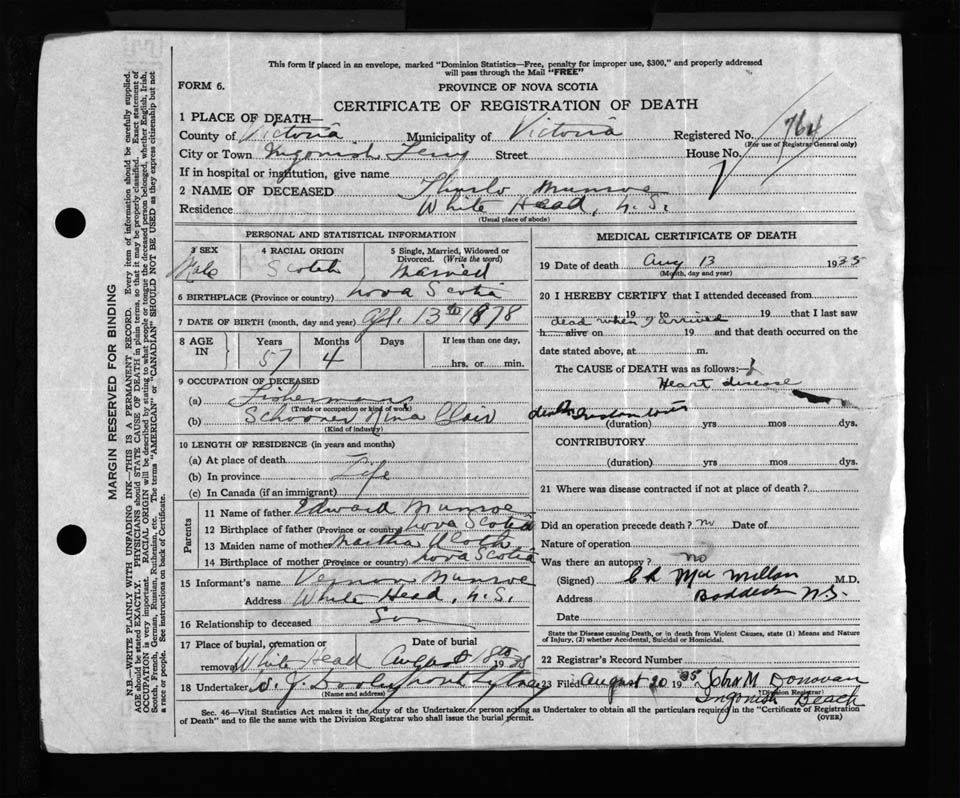 This form if placed in an envelope, marked "Dominion Statistics—Free, penalty for improper use, $300," and properly addressed
will pass through the Mail "FREE"
FORM 6.
PROVINCE OF NOVA SCOTIA
CERTIFICATE OF REGISTRATION OF DEATH
1 PLACE OF DEATH—
County of Victoria Municipality of Victoria Registered No. 764
(For use of Registrar General only)
City or Town Ingonish Ferry Street House No.
If in hospital or institution, give name
2 NAME OF DECEASED Munroe
Residence White Head, N.S.
(Usual place of abode)
PERSONAL AND STATISTICAL INFORMATION
3 SEX 4 RACIAL ORIGIN 5 Single, Married, Widowed or
Divorced. (Write the word)
Male Scotch Married
6 BIRTHPLACE (Province or country) Nova Scotia
7 DATE OF BIRTH (month, day and year) 13th 1878
8 AGE IN Years Months Days If less than one day,
57 4 hrs. or min.
9 OCCUPATION OF DECEASED
(a) Fisherman
(Trade or occupation or kind of work)
(b) Schooner
(Kind of industry)
10 LENGTH OF RESIDENCE (in years and months)
(a) At place of death
(b) In province Life
(c) In Canada (if an immigrant)
Parents
11 Name of father Edward Munroe
12 Birthplace of father (Province or country) Nova Scotia
13 Maiden name of mother Martha
14 Birthplace of mother (Province or country) Nova Scotia
15 Informant's name Vernon Munroe
Address White Head, N.S.
16 Relationship to deceased Son
17 Place of burial, cremation or Date of burial
removal White Head August 1935
18 Undertaker
(Name and address)
MEDICAL CERTIFICATE OF DEATH
19 Date of death Aug 13 1935
(Month, day and year)
20 I HEREBY CERTIFY that I attended deceased from
19 to 19 that I last saw
dead when I arrived
h alive on 19 and that death occurred on the
date stated above, at m.
The CAUSE of DEATH was as follows:—
Heart disease
death
(duration) yrs mos dys.
CONTRIBUTORY
(duration) yrs mos dys.
21 Where was disease contracted if not at place of death?
Did an operation precede death? no Date of
Nature of operation
Was there an autopsy? no
(Signed) MacMillan M.D.
Address Baddeck N.S.
Date
State the Disease causing Death, or in death from Violent Causes, state (1) Means and Nature
of Injury, (2) whether Accidental, Suicidal or Homicidal.
22 Registrar's Record Number
23 Filed August 20 1935 John M Donovan
(Division Registrar)
Ingonish Beach
Sec. 46—Vital Statistics Act makes it the duty of the Undertaker or person acting as Undertaker to obtain all the particulars required in the "Certificate of Registration
of Death" and to file the same with the Division Registrar who shall issue the burial permit.
(OVER)
MARGIN RESERVED FOR BINDING
N.B.—WRITE PLAINLY WITH UNFADING INK—THIS IS A PERMANENT RECORD. Every item of information should be carefully supplied.
AGE should be stated EXACTLY. PHYSICIANS should STATE CAUSE OF DEATH in plain terms, so that it may be properly classified. Exact statement of
OCCUPATION is very important. RACIAL ORIGIN will be described by stating to what people or tongue the deceased person belonged, whether English, Irish,
Scotch, French, German, Russian, Ruthenian, etc. The terms "AMERICAN" or "CANADIAN" SHOULD NOT BE USED as they express citizenship but not
a race or people. See instructions on back of Certificate.